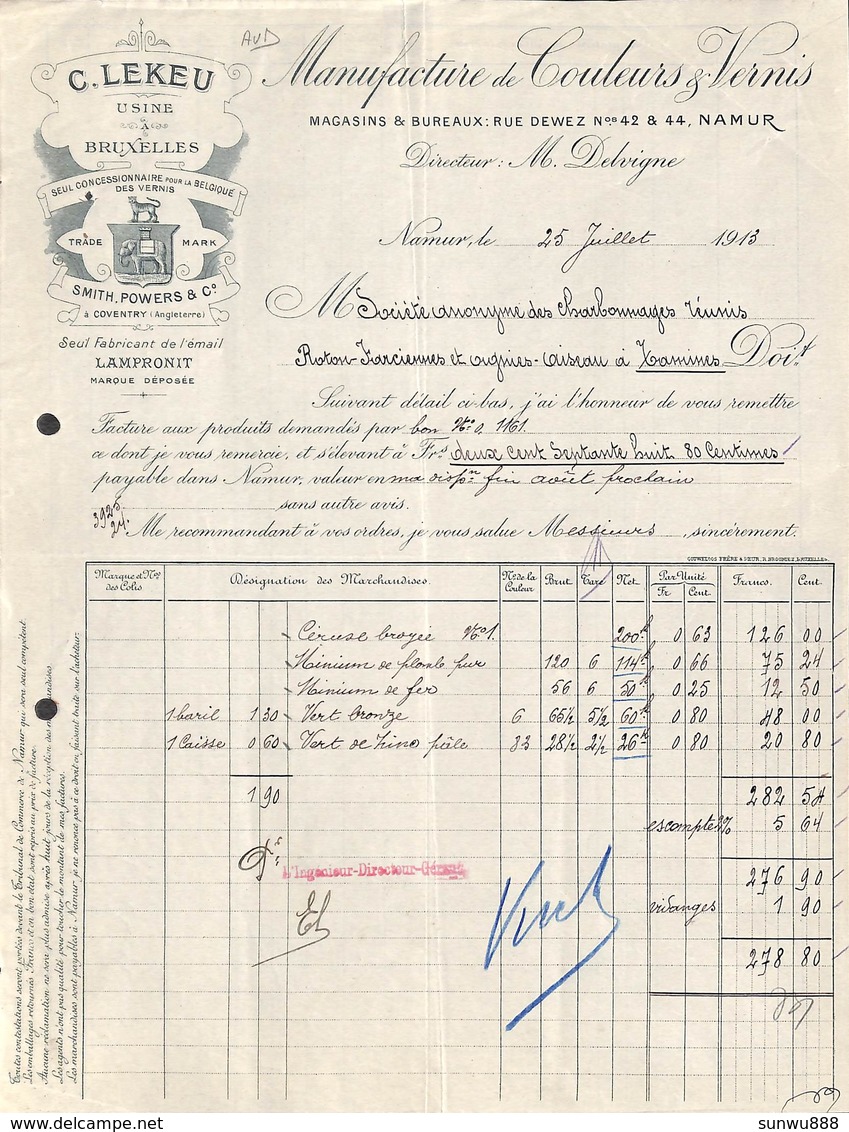 AvD
C. LEKEU
USINE
A
BRUXELLES
SEUL CONCESSIONNAIRE POUR LA BELGIQUE
DES VERNIS
TRADE MARK
SMITH, POWERS & Cº
à COVENTRY (Angleterre)
Seul Fabricant de l'émail
LAMPRONIT
MARQUE DÉPOSÉE
Manufacture de Couleurs & Vernis
MAGASINS & BUREAUX: RUE DEWEZ Nos 42 & 44, NAMUR
Directeur: M. Delvigne
Namur, le 25 Juillet 1913
M Société anonyme des Charbonnages réunis
Roton-Farciennes et Oignies-Aiseau à Tamines Doit
Suivant détail ci-bas, j'ai l'honneur de vous remettre
Facture aux produits demandés par bon Nº 0. 1161.
ce dont je vous remercie, et s'élevant à Frs deux cent septante huit 80 Centimes
payable dans Namur, valeur en ma dispon fin août prochain
sans autre avis.
3925.
27.
Me recommandant à vos ordres, je vous salue Messieurs, sincèrement.
GOUWELOOS FRÈRE & SŒUR, BRUXELLES.
Marque et Nos des Colis Désignation des Marchandises. No de la Couleur Brut Tare Net Par Unité Fr Cent. Francs. Cent.
Céruse broyée Nº1. 200k 0 63 126 00
Minium de plomb pur 120 6 114k 0 66 75 24
Minium de fer 56 6 50k 0 25 12 50
1 baril 1 30 Vert bronze 6 65½ 5½ 60k 0 80 48 00
1 Caisse 0 60 Vert de zinc pâle 83 28½ 2½ 26k 0 80 20 80
1 90 282 54
escompte 2% 5 64
L'Ingénieur-Directeur-Gérant
276 90
vidanges 1 90
278 80
Toutes contestations seront portées devant le Tribunal de Commerce de Namur qui sera seul compétent.
Les emballages retournés Franco et en bon état sont repris au prix de facture.
Aucune réclamation ne sera plus admise après huit jours de la réception des marchandises
Les agents n'ont pas qualité pour toucher le montant de mes factures.
Les marchandises sont payables à Namur, je ne renonce pas à ce droit en faisant traite sur l'acheteur.
sunwu888